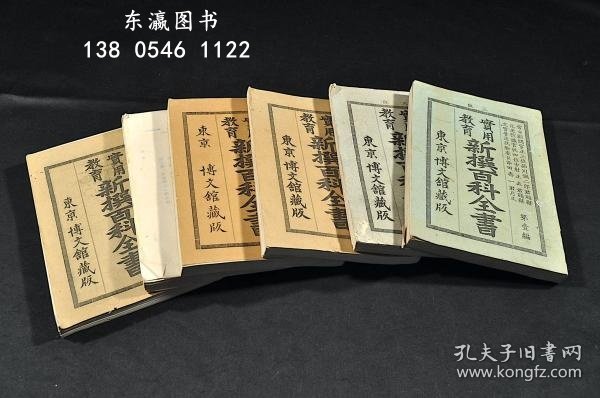 东瀛图书
138 0546 1122
實用
教育
新撰百科全書
東京 博文館藏版
東京 博文館藏版
實用
教育
新撰百科全書
東京 博文館藏版
實用
教育
新撰百科
東京 博文館藏版
實用
教育
新撰百科全書
第壹編
東京 博文館藏版
實用
教育
新撰百科全書
孔夫子旧书网
www.kongfz.com